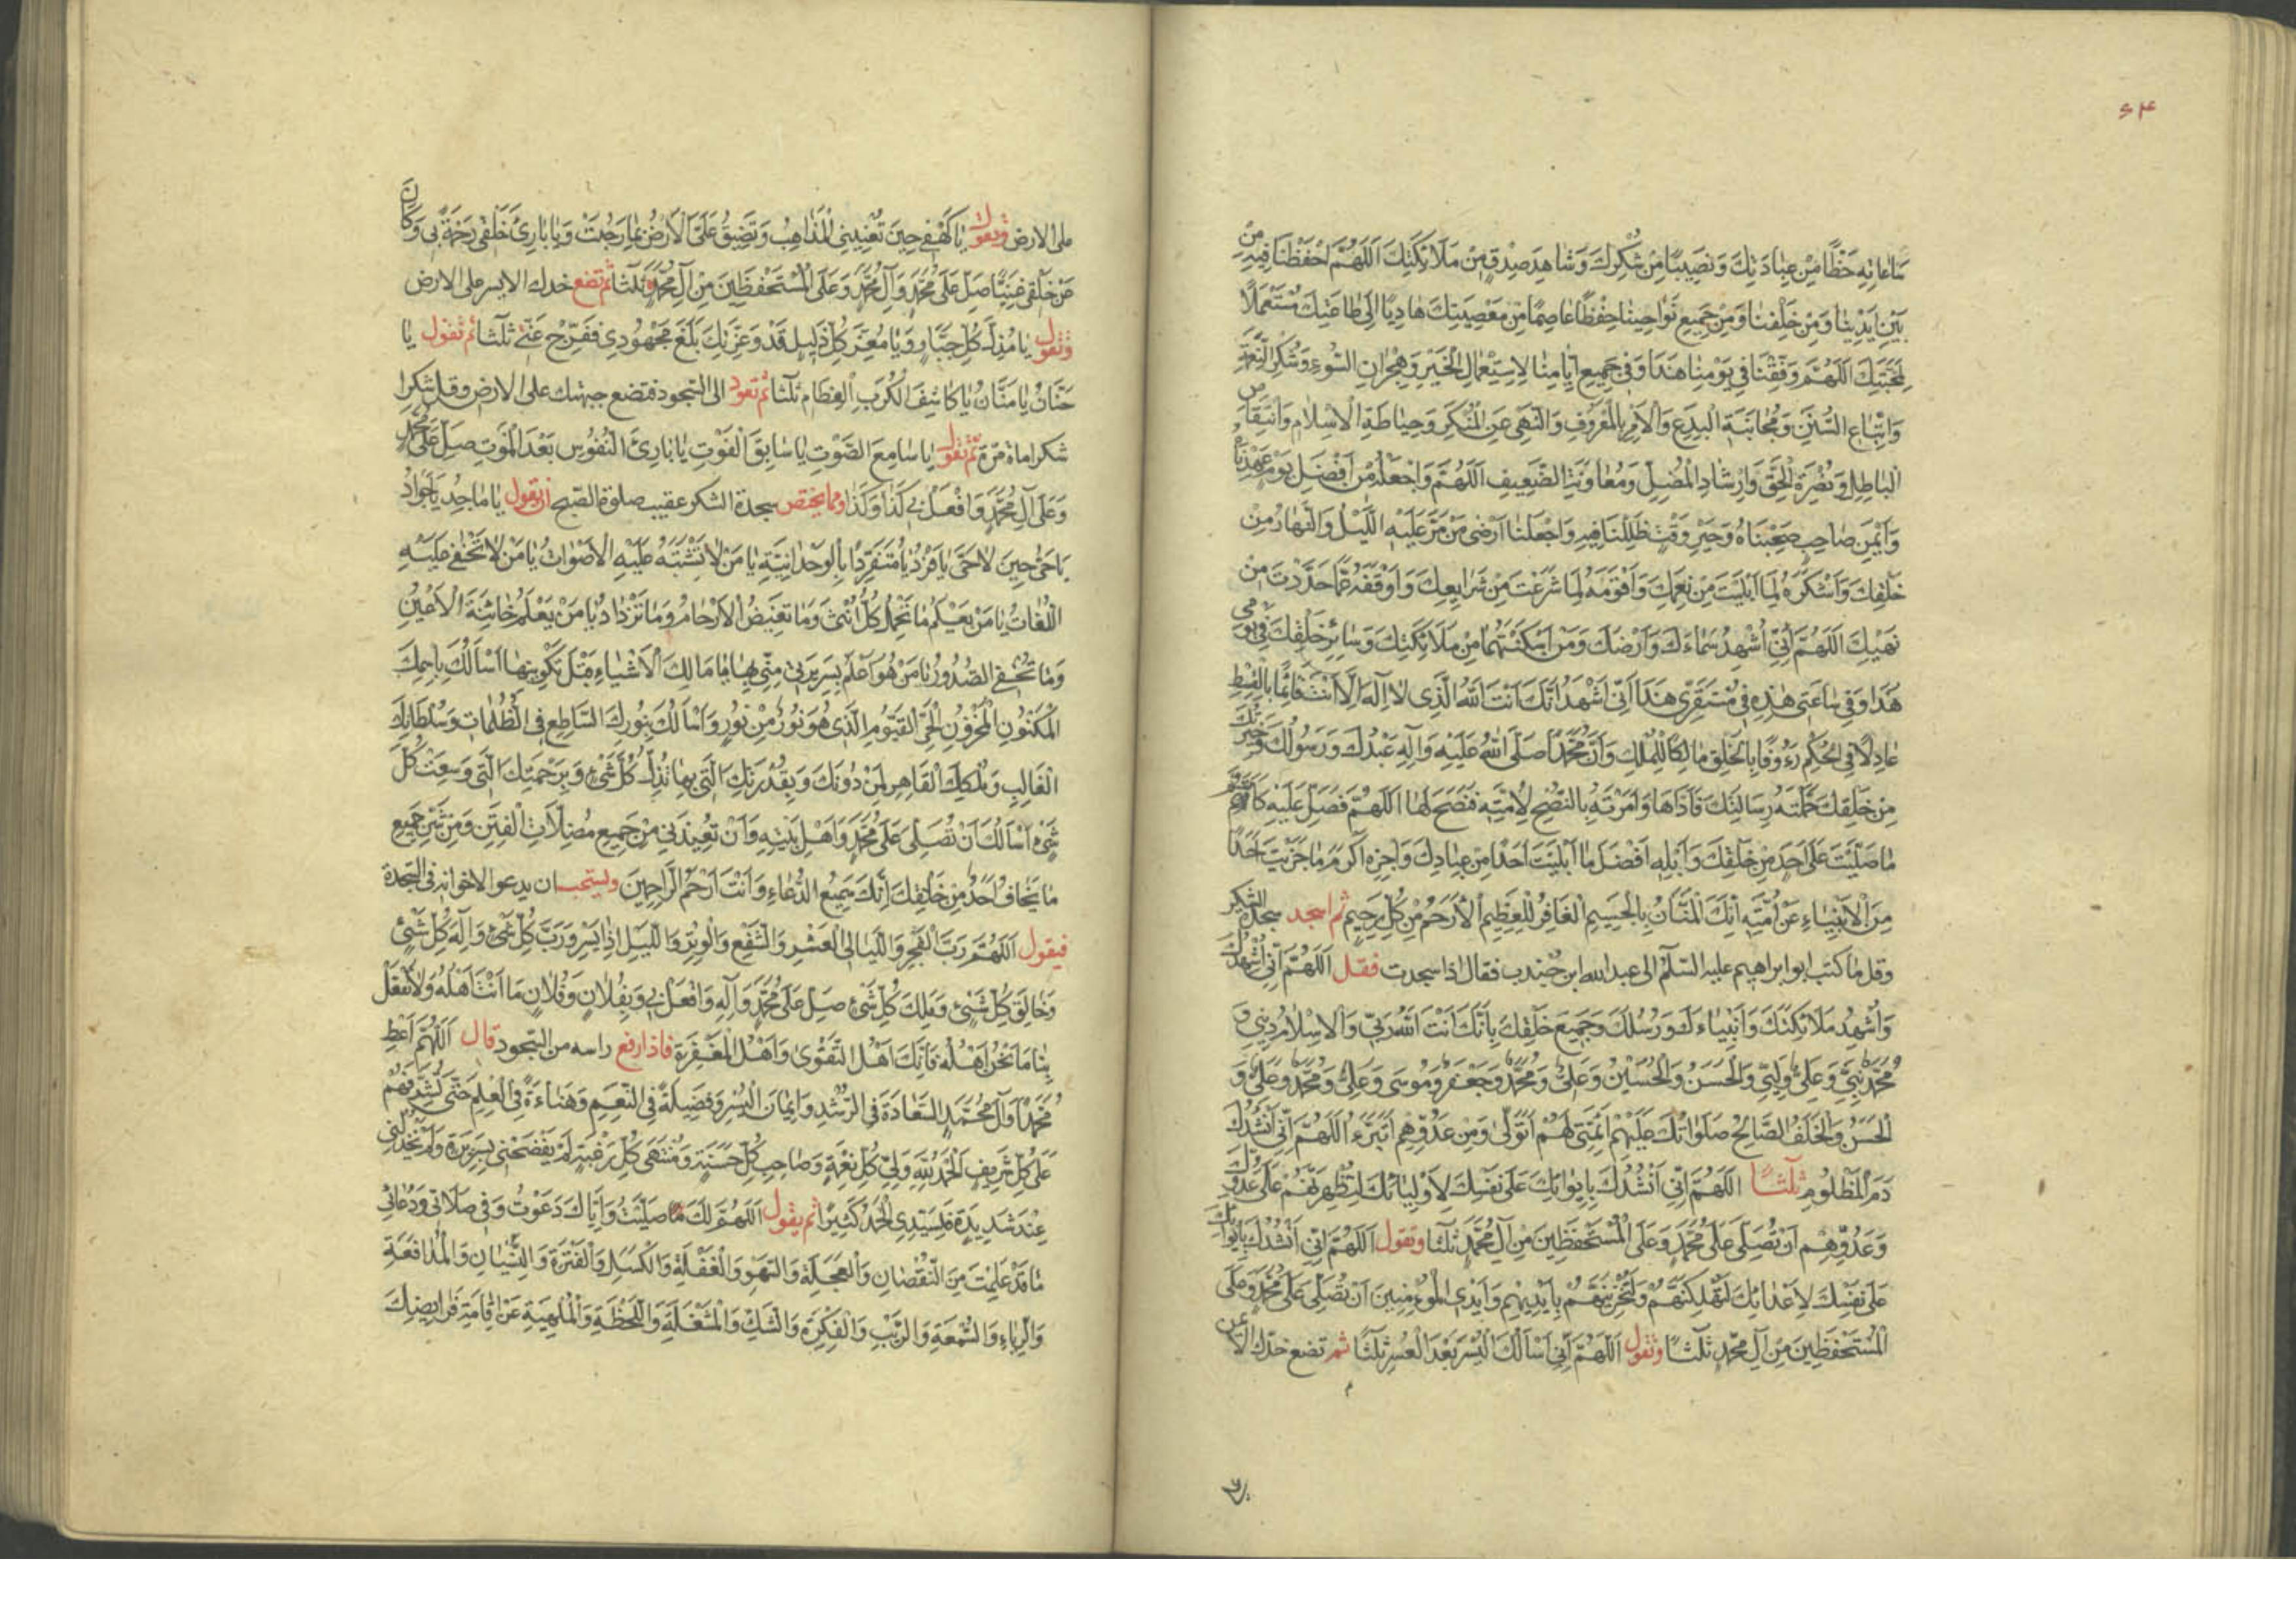 ۶۴
سٰاعٰاتِهِ حَظًّا مِنْ عِبٰادَتِكَ وَنَصِيبًا مِنْ شُكْرِكَ وَشٰاهِدَ صِدْقٍ مِنْ مَلٰائِكَتِكَ اَللّٰهُمَّ احْفَظْنٰا فِيهِ مِنْ
بَيْنِ اَيْدِينٰا وَمِنْ خَلْفِنٰا وَمِنْ جَمِيعِ نَوٰاحِينٰا حِفْظًا عٰاصِمًا مِنْ مَعْصِيَتِكَ هٰادِيًا اِلٰى طٰاعَتِكَ مُسْتَعْمَلًا
لِمَحَبَّتِكَ اَللّٰهُمَّ وَفِّقْنٰا فِي يَوْمِنٰا هٰذٰا وَفِي جَمِيعِ اَيّٰامِنٰا لِاسْتِعْمٰالِ الْخَيْرِ وَهِجْرٰانِ السُّوءِ وَشُكْرِ النِّعْمَةِ
وَاتِّبٰاعِ السُّنَنِ وَمُجٰانَبَةِ الْبِدَعِ وَالْاَمْرِ بِالْمَعْرُوفِ وَالنَّهْيِ عَنِ الْمُنْكَرِ وَحِيٰاطَةِ الْاِسْلٰامِ وَانْتِقٰاصِ
الْبٰاطِلِ وَنُصْرَةِ الْحَقِّ وَاِرْشٰادِ الْمُضِلِّ وَمُعٰاوَنَةِ الضَّعِيفِ اَللّٰهُمَّ وَاجْعَلْهُ مِنْ اَفْضَلِ يَوْمٍ عَهِدْنٰاهُ
وَاَيْمَنِ صٰاحِبٍ صَحِبْنٰاهُ وَخَيْرِ وَقْتٍ ظَلِلْنٰا فِيهِ وَاجْعَلْنٰا اَرْضٰى مَنْ مَرَّ عَلَيْهِ اللَّيْلُ وَالنَّهٰارُ مِنْ
خَلْقِكَ وَاَشْكَرَهُ لِمٰا اَبْلَيْتَ مِنْ نِعَمِكَ وَاَقْوَمَهُ لِمٰا شَرَعْتَ مِنْ شَرٰايِعِكَ وَاَوْقَفَهُ عَمّٰا حَذَّرْتَ مِنْ
نَهْيِكَ اَللّٰهُمَّ اِنِّي اُشْهِدُ سَمٰاءَكَ وَاَرْضَكَ وَمَنْ اَسْكَنْتَهُمٰا مِنْ مَلٰائِكَتِكَ وَسٰائِرِ خَلْقِكَ فِي يَوْمِي
هٰذٰا وَفِي سٰاعَتِي هٰذِهِ فِي مُسْتَقَرِّي هٰذٰا اَنِّي اَشْهَدُ اَنَّكَ اَنْتَ اللهُ الَّذِي لٰا اِلٰهَ اِلّٰا اَنْتَ قٰائِمًا بِالْقِسْطِ
عٰادِلًا فِي الْحُكْمِ رَءُوفًا بِالْخَلْقِ مٰالِكًا لِلْمُلْكِ وَاَنَّ مُحَمَّدًا صَلَّى اللهُ عَلَيْهِ وَآلِهِ عَبْدُكَ وَرَسُولُكَ وَخِيَرَتُكَ
مِنْ خَلْقِكَ حَمَّلْتَهُ رِسٰالَتَكَ فَاَدّٰاهٰا وَاَمَرْتَهُ بِالنُّصْحِ لِاُمَّتِهِ فَنَصَحَ لَهٰا اَللّٰهُمَّ فَصَلِّ عَلَيْهِ كَاَكْرَمِ
مٰا صَلَّيْتَ عَلٰى اَحَدٍ مِنْ خَلْقِكَ وَاَنِلْهُ اَفْضَلَ مٰا اَبْلَيْتَ اَحَدًا مِنْ عِبٰادِكَ وَاجْزِهِ اَكْرَمَ مٰا جَزَيْتَ اَحَدًا
مِنَ الْاَنْبِيٰاءِ عَنْ اُمَّتِهِ اِنَّكَ الْمَنّٰانُ بِالْجَسِيمِ الْغٰافِرُ لِلْعَظِيمِ الْاَرْحَمُ مِنْ كُلِّ رَحِيمٍ ثم اسجد سجدة الشكر
وقل ما كتب ابوابراهيم عليه السّلٰم الى عبدالله ابن جندب فقال اذا سجدت فقل اَللّٰهُمَّ اِنِّي اُشْهِدُكَ
وَاُشْهِدُ مَلٰائِكَتَكَ وَاَنْبِيٰاءَكَ وَرُسُلَكَ وَجَمِيعَ خَلْقِكَ بِاَنَّكَ اَنْتَ اللهُ رَبِّي وَالْاِسْلٰامُ دِينِي وَ
مُحَمَّدٌ نَبِيِّي وَعَلِيٌّ وَلِيِّي وَالْحَسَنُ وَالْحُسَيْنُ وَعَلِيٌّ وَمُحَمَّدٌ وَجَعْفَرٌ وَمُوسٰى وَعَلِيٌّ وَمُحَمَّدٌ وَعَلِيٌّ وَ
الْحَسَنُ وَالْخَلَفُ الصّٰالِحُ صَلَوٰاتُكَ عَلَيْهِمْ اَئِمَّتِي لَهُمْ اَتَوَلّٰى وَمِنْ عَدُوِّهِمْ اَتَبَرَّءُ اَللّٰهُمَّ اِنِّي اَنْشُدُكَ
دَمَ الْمَظْلُومِ ثلٰثًا اَللّٰهُمَّ اِنِّي اَنْشُدُكَ بِاِيوٰائِكَ عَلٰى نَفْسِكَ لِاَوْلِيٰائِكَ لَتُظْهِرَنَّهُمْ عَلٰى عَدُوِّكَ
وَعَدُوِّهِمْ اَنْ تُصَلِّيَ عَلٰى مُحَمَّدٍ وَعَلَى الْمُسْتَحْفَظِينَ مِنْ آلِ مُحَمَّدٍ ثلٰثًا وتقول اَللّٰهُمَّ اِنِّي اَنْشُدُكَ بِاِيوٰائِكَ
عَلٰى نَفْسِكَ لِاَعْدٰائِكَ لَتُهْلِكَنَّهُمْ وَلَتُخْزِيَنَّهُمْ بِاَيْدِيهِمْ وَاَيْدِي الْمُؤْمِنِينَ اَنْ تُصَلِّيَ عَلٰى مُحَمَّدٍ وَعَلَى
الْمُسْتَحْفَظِينَ مِنْ آلِ مُحَمَّدٍ ثلٰثًا وتقول اَللّٰهُمَّ اِنِّي اَسْأَلُكَ الْيُسْرَ بَعْدَ الْعُسْرِ ثلٰثًا ثم تضع خدّك الايمن
على الارض وتقول يٰا كَهْفِي حِينَ تُعْيِينِي الْمَذٰاهِبُ وَتَضِيقُ عَلَيَّ الْاَرْضُ بِمٰا رَحُبَتْ وَيٰا بٰارِئَ خَلْقِي رَحْمَةً بِي وَكٰانَ
عَنْ خَلْقِي غَنِيًّا صَلِّ عَلٰى مُحَمَّدٍ وَآلِ مُحَمَّدٍ وَعَلَى الْمُسْتَحْفَظِينَ مِنْ آلِ مُحَمَّدٍ ثلٰثا ثم تضع خدك الايسر على الارض
وتقول يٰا مُذِلَّ كُلِّ جَبّٰارٍ وَيٰا مُعِزَّ كُلِّ ذَلِيلٍ قَدْ وَعِزَّتِكَ بَلَغَ مَجْهُودِي فَفَرِّجْ عَنِّي ثلٰثا ثم تقول يٰا
حَنّٰانُ يٰا مَنّٰانُ يٰا كٰاشِفَ الْكُرَبِ الْعِظٰامِ ثلٰثا ثم تعود الى السّجود فتضع جبهتك على الارض وقل شكرا
شكرا ماة مرّة ثم تقول يٰا سٰامِعَ الصَّوْتِ يٰا سٰابِقَ الْفَوْتِ يٰا بٰارِئَ النُّفُوسِ بَعْدَ الْمَوْتِ صَلِّ عَلٰى مُحَمَّدٍ
وَعَلٰى آلِ مُحَمَّدٍ وَافْعَلْ بِي كَذٰا وَكَذٰا ومما يختص سجدة الشكر عقيب صلوة الصّبح ان يقول يٰا مٰاجِدُ يٰا جَوٰادُ
يٰا حَيُّ حِينَ لٰا حَيَّ يٰا فَرْدُ يٰا مُتَفَرِّدًا بِالْوَحْدٰانِيَّةِ يٰا مَنْ لٰا تَشْتَبِهُ عَلَيْهِ الْاَصْوٰاتُ يٰا مَنْ لٰا تَخْفٰى عَلَيْهِ
اللُّغٰاتُ يٰا مَنْ يَعْلَمُ مٰا تَحْمِلُ كُلُّ اُنْثٰى وَمٰا تَغِيضُ الْاَرْحٰامُ وَمٰا تَزْدٰادُ يٰا مَنْ يَعْلَمُ خٰائِنَةَ الْاَعْيُنِ
وَمٰا تُخْفِي الصُّدُورُ يٰا مَنْ هُوَ اَعْلَمُ بِسَرِيرَتِي مِنِّي بِهٰا يٰا مٰالِكَ الْاَشْيٰاءِ قَبْلَ تَكْوِينِهٰا اَسْأَلُكَ بِاسْمِكَ
الْمَكْنُونِ الْمَخْزُونِ الْحَيِّ الْقَيُّومِ الَّذِي هُوَ نُورٌ مِنْ نُورٍ وَاَسْأَلُكَ بِنُورِكَ السّٰاطِعِ فِي الظُّلُمٰاتِ وَسُلْطٰانِكَ
الْغٰالِبِ وَمُلْكِكَ الْقٰاهِرِ لِمَنْ دُونَكَ وَبِقُدْرَتِكَ الَّتِي بِهٰا تُذِلُّ كُلَّ شَيْءٍ وَبِرَحْمَتِكَ الَّتِي وَسِعَتْ كُلَّ
شَيْءٍ اَسْأَلُكَ اَنْ تُصَلِّيَ عَلٰى مُحَمَّدٍ وَاَهْلِ بَيْتِهِ وَاَنْ تُعِيذَنِي مِنْ جَمِيعِ مُضِلّٰاتِ الْفِتَنِ وَمِنْ شَرِّ جَمِيعِ
مٰا يَخٰافُ اَحَدٌ مِنْ خَلْقِكَ اِنَّكَ سَمِيعُ الدُّعٰاءِ وَاَنْتَ اَرْحَمُ الرّٰاحِمِينَ ويستحب ان يدعو الاخوانه فى السّجدة
فيقول اَللّٰهُمَّ رَبَّ الْفَجْرِ وَاللَّيٰالِي الْعَشْرِ وَالشَّفْعِ وَالْوِتْرِ وَاللَّيْلِ اِذٰا يَسْرِ وَرَبَّ كُلِّ شَيْءٍ وَاِلٰهَ كُلِّ شَيْءٍ
وَخٰالِقَ كُلِّ شَيْءٍ وَمَلِكَ كُلِّ شَيْءٍ صَلِّ عَلٰى مُحَمَّدٍ وَآلِهِ وَافْعَلْ بِي وَبِفُلٰانٍ وَفُلٰانٍ مٰا اَنْتَ اَهْلُهُ وَلٰا تَفْعَلْ
بِنٰا مٰا نَحْنُ اَهْلُهُ فَاِنَّكَ اَهْلُ التَّقْوٰى وَاَهْلُ الْمَغْفِرَةِ فاذا رفع راسه من السّجود قال اَللّٰهُمَّ اَعْطِ
مُحَمَّدًا وَآلَ مُحَمَّدٍ السَّعٰادَةَ فِي الرُّشْدِ وَاِيمٰانَ الْيُسْرِ وَفَضِيلَةً فِي النِّعَمِ وَهَنٰاءَةً فِي الْعِلْمِ حَتّٰى تُشَرِّفَهُمْ
عَلٰى كُلِّ شَرِيفٍ اَلْحَمْدُ لِلّٰهِ وَلِيِّ كُلِّ نِعْمَةٍ وَصٰاحِبِ كُلِّ حَسَنَةٍ وَمُنْتَهٰى كُلِّ رَغْبَةٍ لَمْ يَفْضَحْنِي بِسَرِيرَةٍ وَلَمْ يَخْذُلْنِي
عِنْدَ شَدِيدَةٍ فَلِسَيِّدِي الْحَمْدُ كَثِيرًا ثم يقول اَللّٰهُمَّ لَكَ صَلَّيْتُ وَاِيّٰاكَ دَعَوْتُ وَفِي صَلٰاتِي وَدُعٰائِي
مٰا قَدْ عَلِمْتَ مِنَ النُّقْصٰانِ وَالْعَجَلَةِ وَالسَّهْوِ وَالْغَفْلَةِ وَالْكَسَلِ وَالْفَتْرَةِ وَالنِّسْيٰانِ وَالْمُدٰافَعَةِ
وَالرِّيٰاءِ وَالسُّمْعَةِ وَالرَّيْبِ وَالْفِكْرَةِ وَالشَّكِّ وَالْمَشْغَلَةِ وَاللَّحْظَةِ وَالْمُلْهِيَةِ عَنْ اِقٰامَةِ فَرٰايِضِكَ